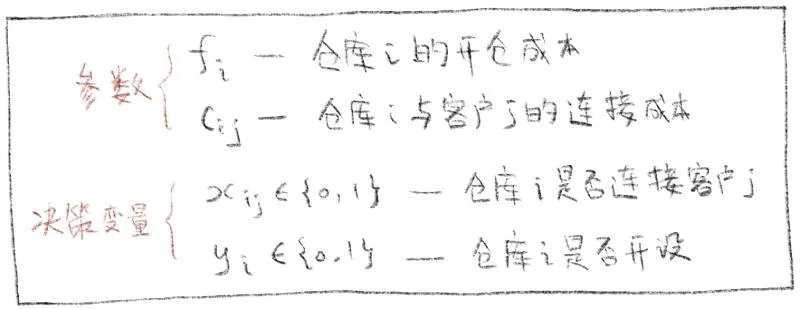 参数
f_i — 仓库i的开仓成本
c_ij — 仓库i与客户j的连接成本
决策变量
x_ij ∈ {0,1} — 仓库i是否连接客户j
y_i ∈ {0,1} — 仓库i是否开设